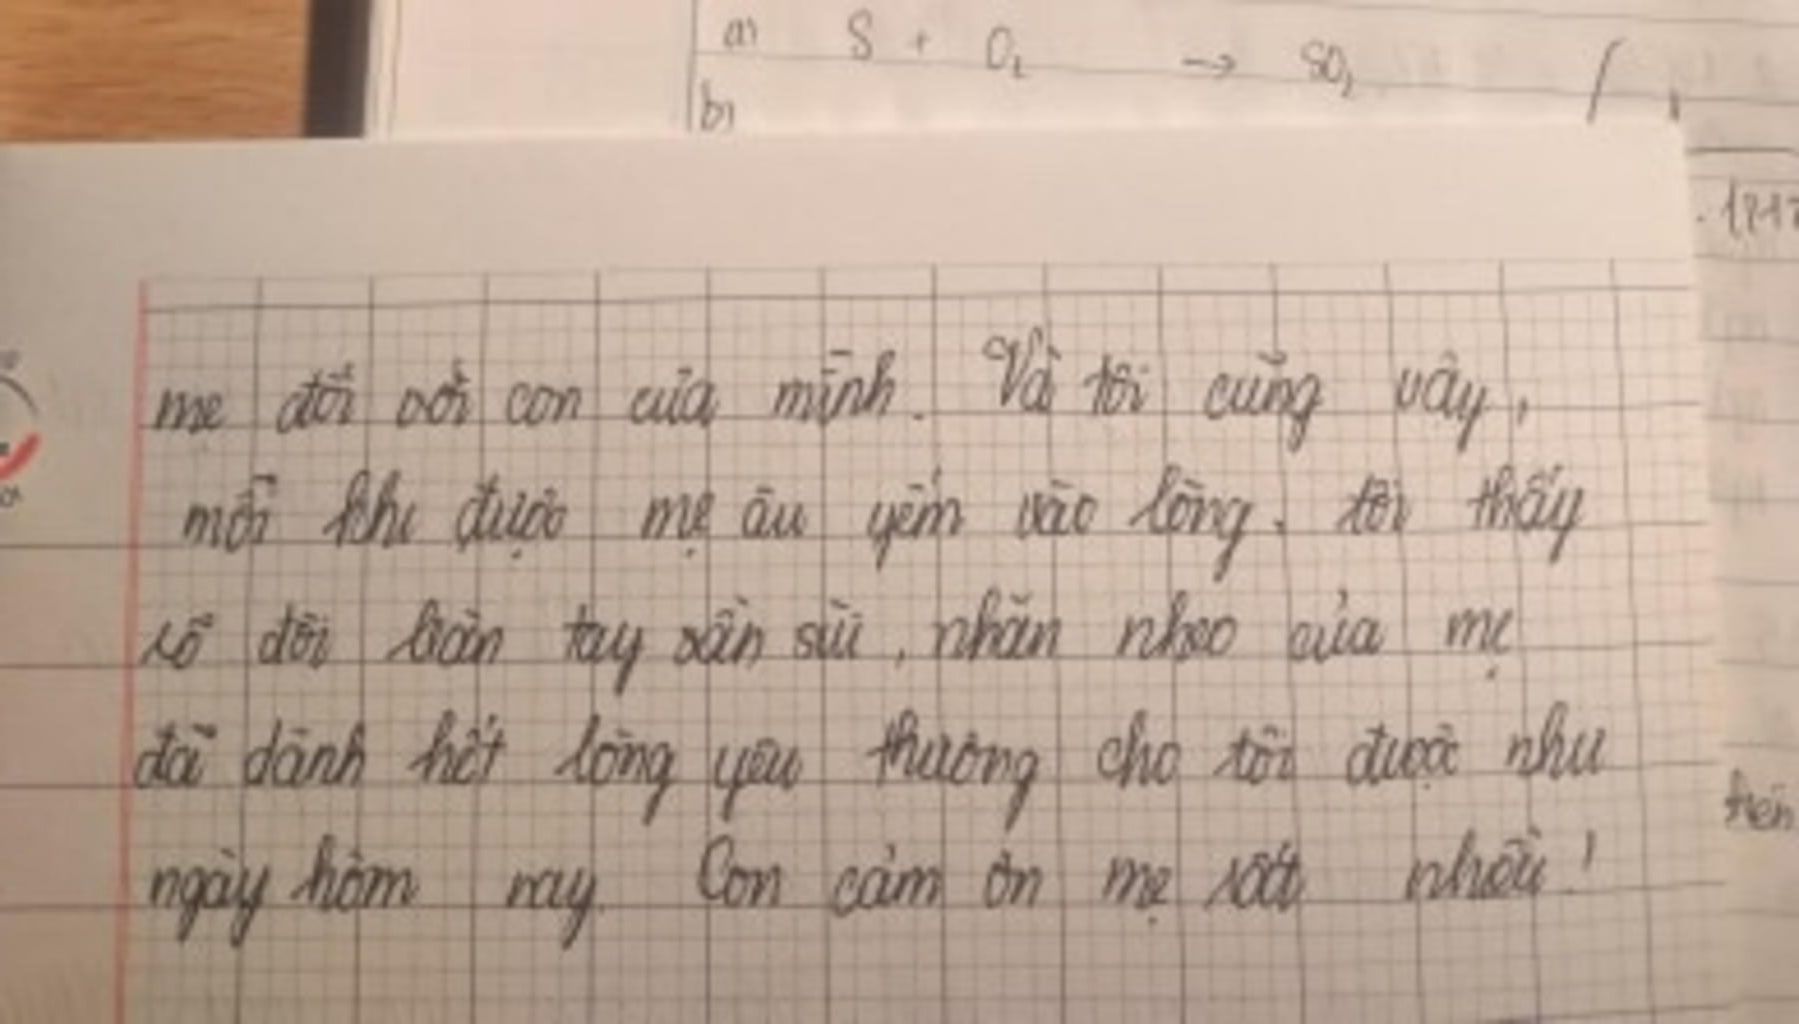 a) S + O₂ → SO₂
b)
mẹ đối với con của mình. Và tôi cũng vậy,
mỗi khi được mẹ âu yếm vào lòng, tôi thấy
rõ đôi bàn tay sần sùi, nhăn nheo của mẹ
đã dành hết lòng yêu thương cho tôi được như
ngày hôm nay. Con cảm ơn mẹ rất nhiều!